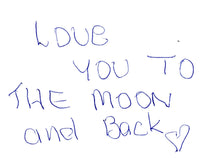 LOVE
YOU TO
THE MOON
and Back